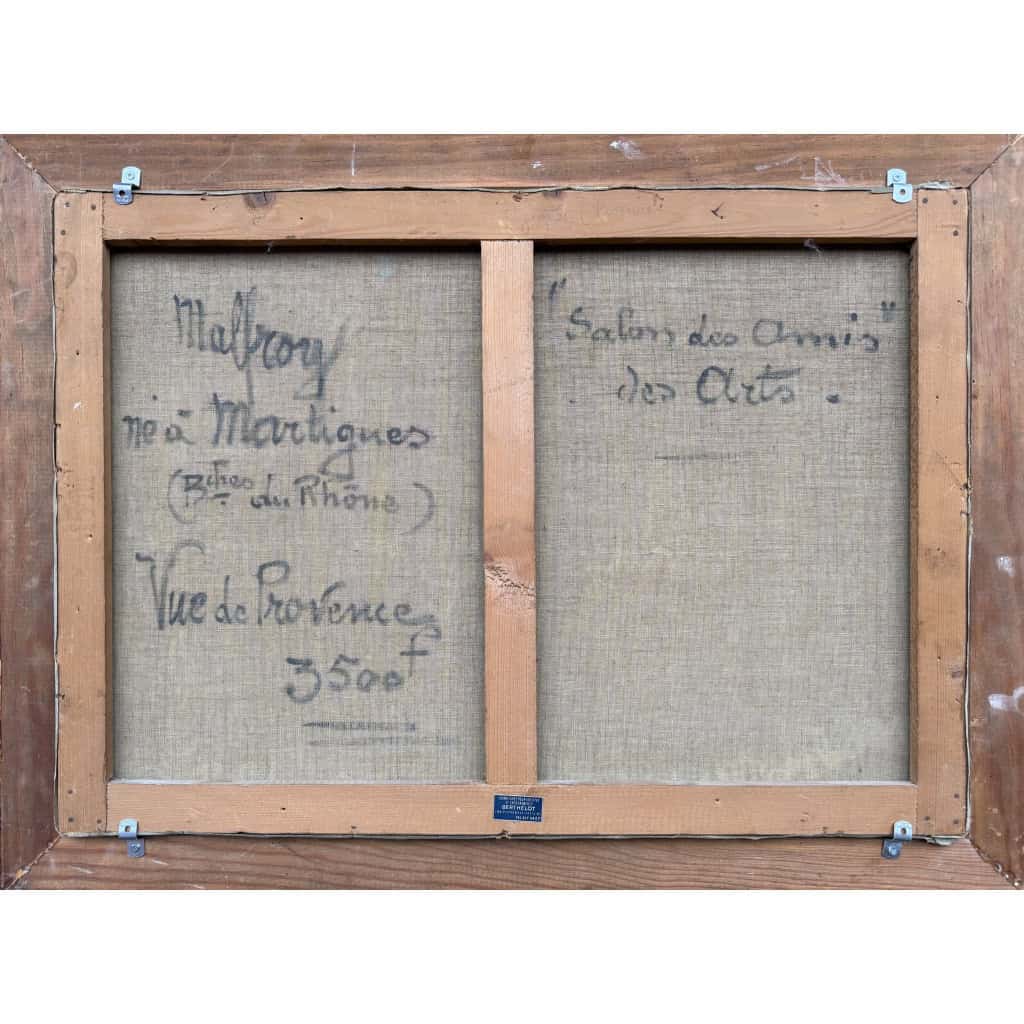 Malfroy
né à Martigues
(Bches du Rhône)
Vue de Provence
3500f
"Salon des Amis"
des Arts.
BERTHELOT